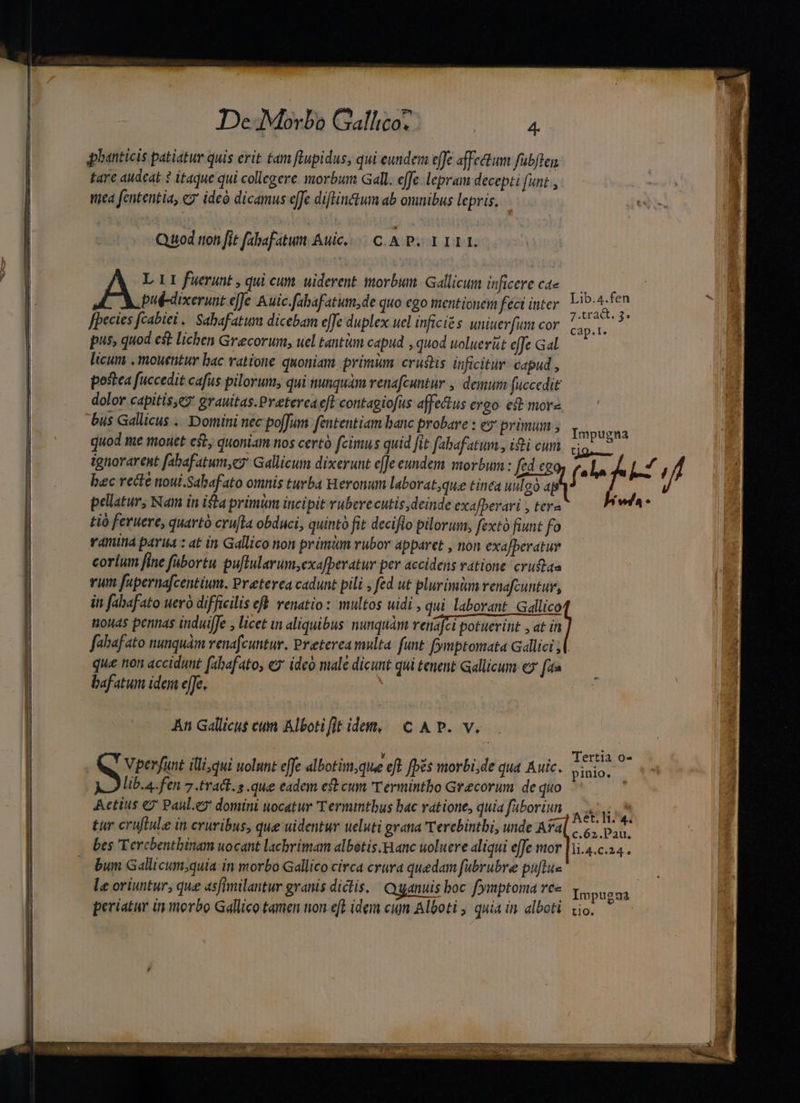 De Morbo Gallico. 4
phanticis patiatur quis erit tam ſtupidus, qui eundem eſſe affectum ſubſten
tare audeat? itaque qui collegere morbum Gall. eſſe lepram decepti ſunt,
mea ſententia, & ideò dicamus eſſe diſtinctum ab omnibus lepris.
Quod non ſit ſahafatum Auic. CAP. IIII.
ALII fuerunt, qui cum uiderent morbum Gallicum inficere cae
put dixerunt eſſe Auic. ſahafatum, de quo ego mentionem feci inter
Lib.4.fen
ſpecies ſcabiei. Sahafatum dicebam eſſe duplex uel inficiẽs uniuerſum cor
7.tract.3.
cap.1.
pus, quod est lichen Græcorum, uel tantùm capud, quod uoluerũt eſſe Gal
licum. mouentur hac ratione quoniam primùm crustis inficitur capud,
postea ſuccedit caſus pilorum, qui nunquàm renaſcuntur, demum ſuccedit
dolor capitis, & grauitas. Præterea eſt contagioſus affectus ergo est mor=
bus Gallicus. Domini nec poſſum ſententiam hanc probare: & primùm,
Impugna
quod me mouet est, quoniam nos certò ſcimus quid ſit ſahafatum, isti cum
tio.
ignorarent ſahafatum, & Gallicum dixerunt eſſe eundem morbum: ſed ego
hæc rectè noui. Sahafato omnis turba Heronum laborat, quæ tinea uulgò ap
pellatur, Nam in ista primùm incipit rubere cutis, deinde exaſperari, ter=
tiò feruere, quartò cruſta obduci, quintò fit deciſio pilorum, ſextò fiunt fo
ramina parua: at in Gallico non primùm rubor apparet, non exaſperatur
corium ſine ſubortu puſtularum, exaſperatur per accidens ratione crusta=
rum ſupernaſcentium. Præterea cadunt pili, ſed ut plurimùm renaſcuntur,
in ſahafato uerò difficilis eſt renatio: multos uidi, qui laborant Gallico
nouas pennas induiſſe, licet in aliquibus nunquàm renaſci potuerint, at in
ſahafato nunquàm renaſcuntur. Præterea multa ſunt ſymptomata Gallici,
quæ non accidunt ſahafato, & ideò malè dicunt qui tenent Gallicum & ſa=
hafatum idem eſſe.
An Gallicus cum Alboti ſit idem. CAP. V.
SVperſunt illi, qui uolunt eſſe albotim, quæ eſt ſpẽs morbi, de qua Auic.
Tertia o=
pinio.
lib.4.fen 7.tract.3. quæ eadem est cum Termintho Græcorum de quo
Aetius & Paul. & domini uocatur Terminthus hac ratione, quia ſuboriun
Aët. li. 4.
tur cruſtulæ in cruribus, quæ uidentur ueluti grana Terebinthi, unde Ara
c.62.Pau.
bes Terebenthinam uocant lachrimam albotis. Hanc uoluere aliqui eſſe mor
li.4.c.24.
bum Gallicum, quia in morbo Gallico circa crura quædam ſubrubræ puſtu=
læ oriuntur, quæ aſſimilantur granis dictis. Quanuis hoc ſymptoma re=
Impugna
periatur in morbo Gallico tamen non eſt idem cum Alboti, quia in alboti
tio.